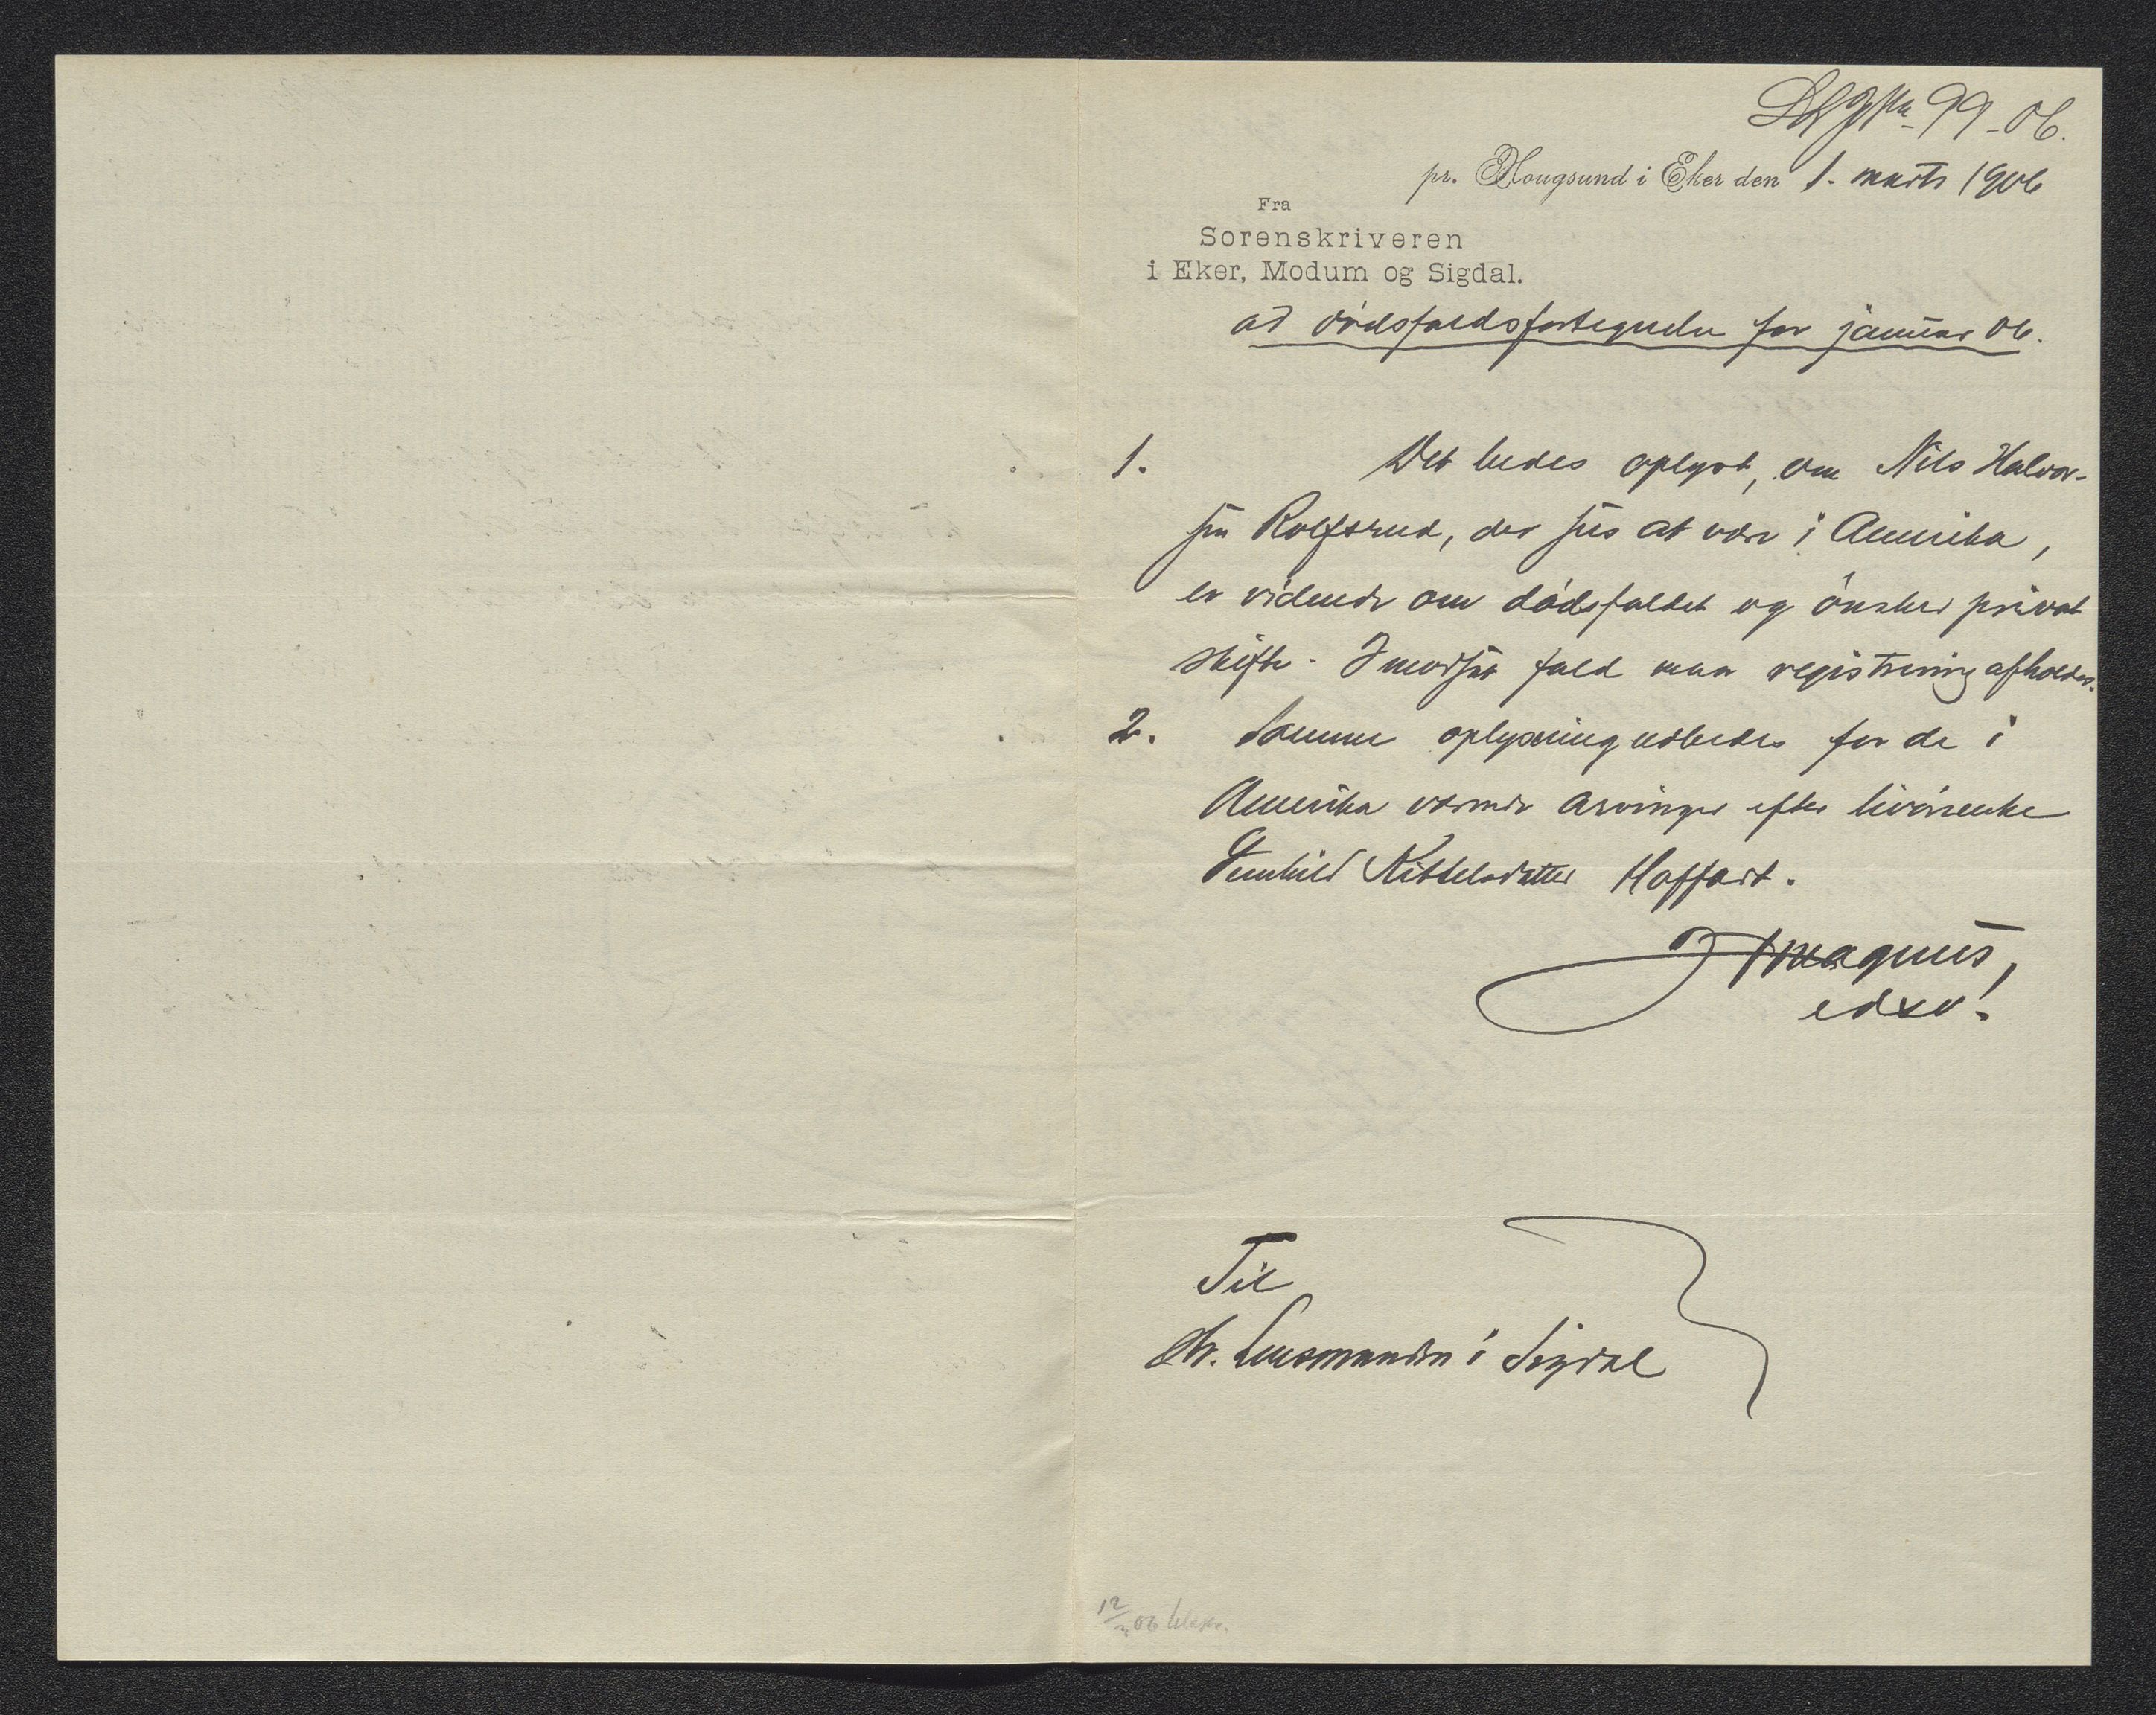 99-06.
pr. Hougsund i Eker den 1. marts 1906
Fra
Sorenskriveren
i Eker, Modum og Sigdal.
ad dødsfaldsfortegnelse for januar 06.
1. Det bedes oplyst, om Nils Halvor-
sen Rolfsrud, der sies at være i Amerika,
er vidende om dødsfaldet og ønsker privat
skifte. I modsat fald maa registrering afholdes.
2. Samme oplysning udbedes for de i
Amerika værende arvinger efter livørenke
Gunhild Kittelsdatter Hoffart.
Magnus,
edsv.
Til
Hr. Lensmanden i Sigdal
12/3 06